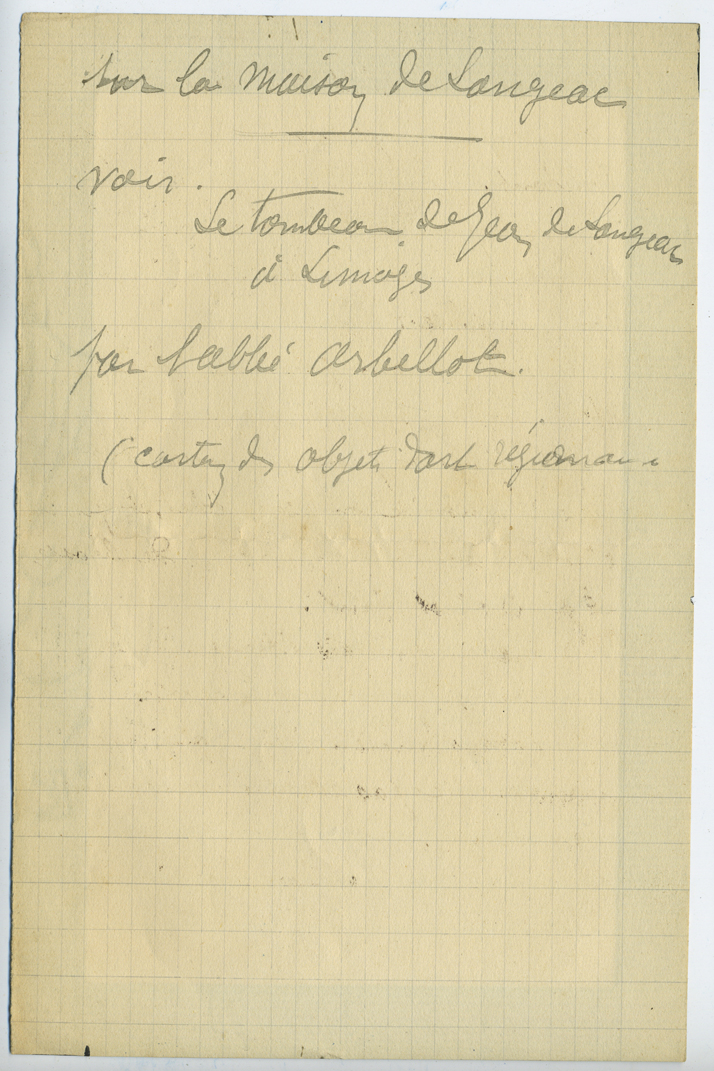 sur la maison de Langeac
voir.
Le tombeau de Jean de Langeac
à Limoges
par l'abbé Arbellot.
(carton des objets d'art régionaux